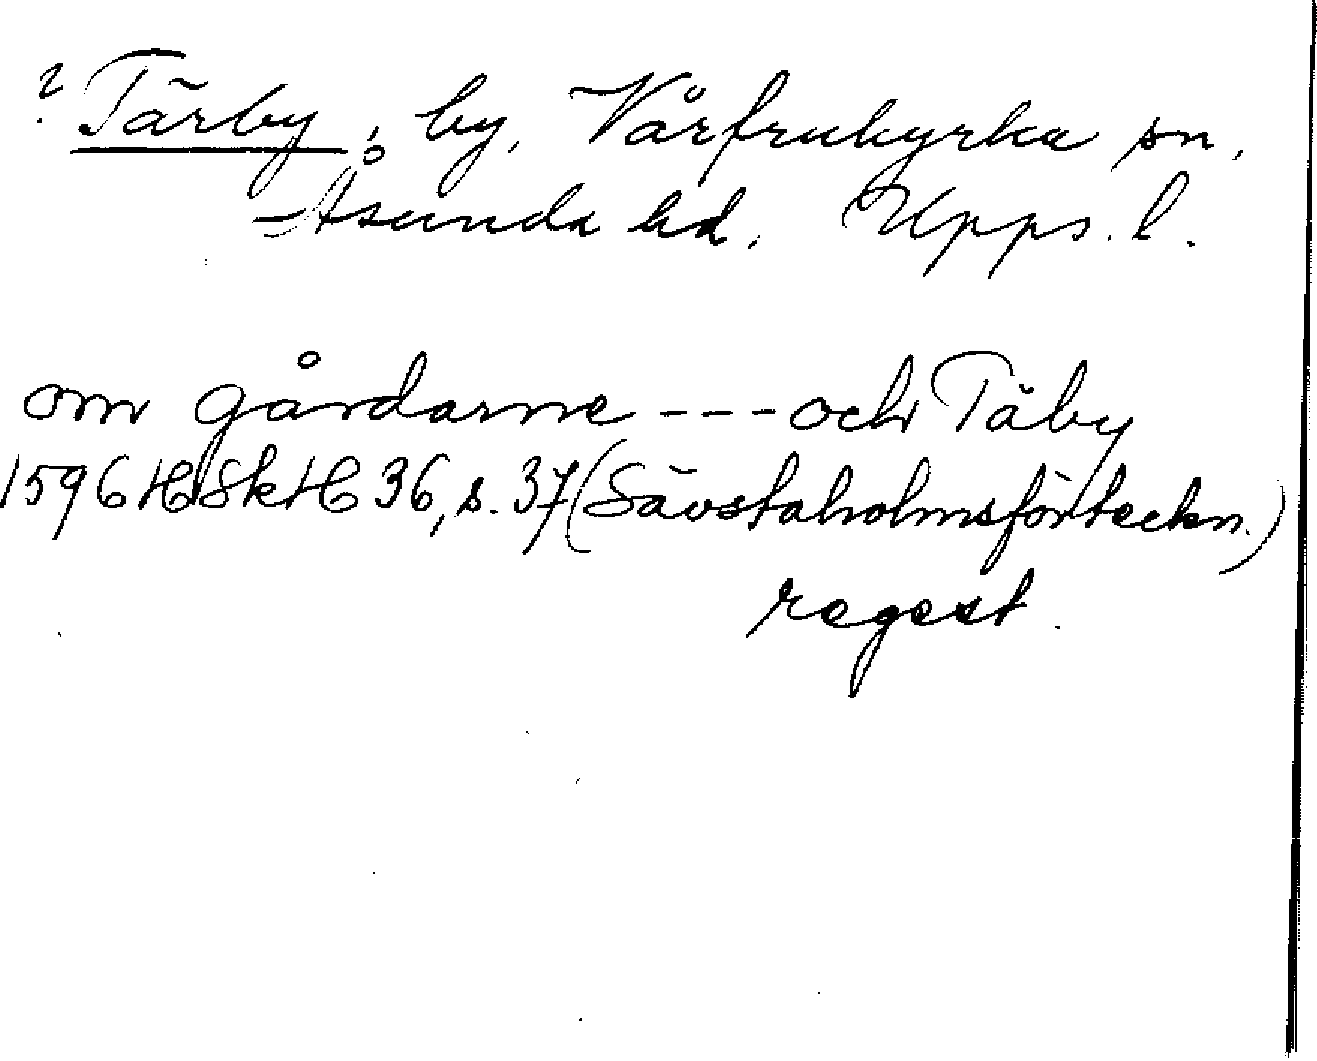 ? Tärby, by, Vårfrukyrka sn,
Åsunda hd, Upps. l.
om gårdarne --- och Täby
1596 HSkH 36, s. 37 (Sävstaholmsförteckn.)
regest.